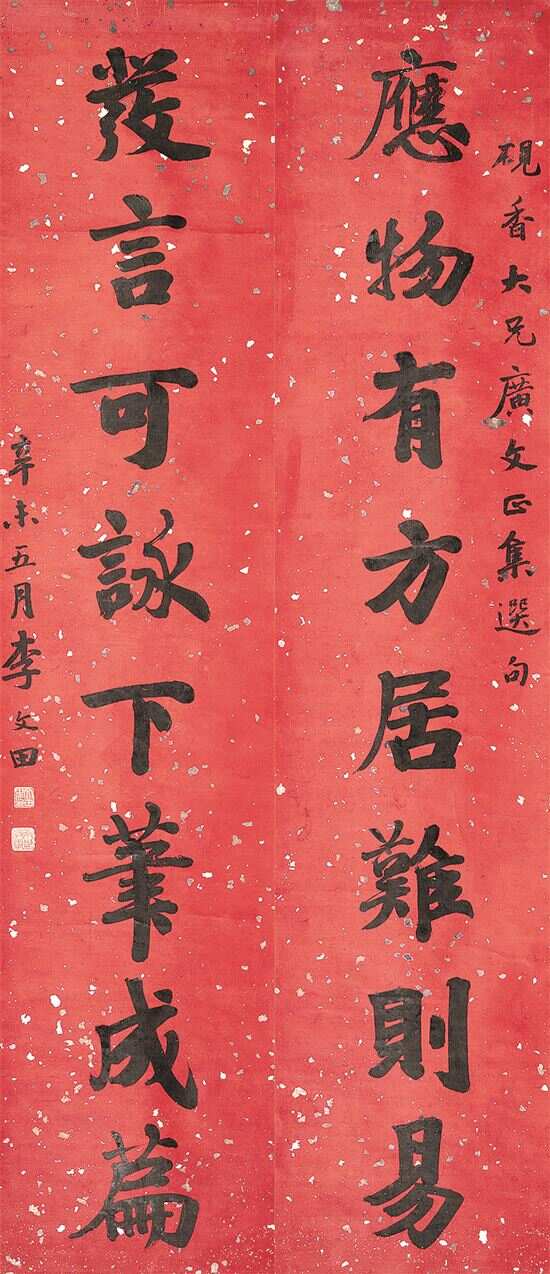 硯香大兄廣文正集選句
應物有方居難則易
發言可詠下筆成篇
辛未五月李文田